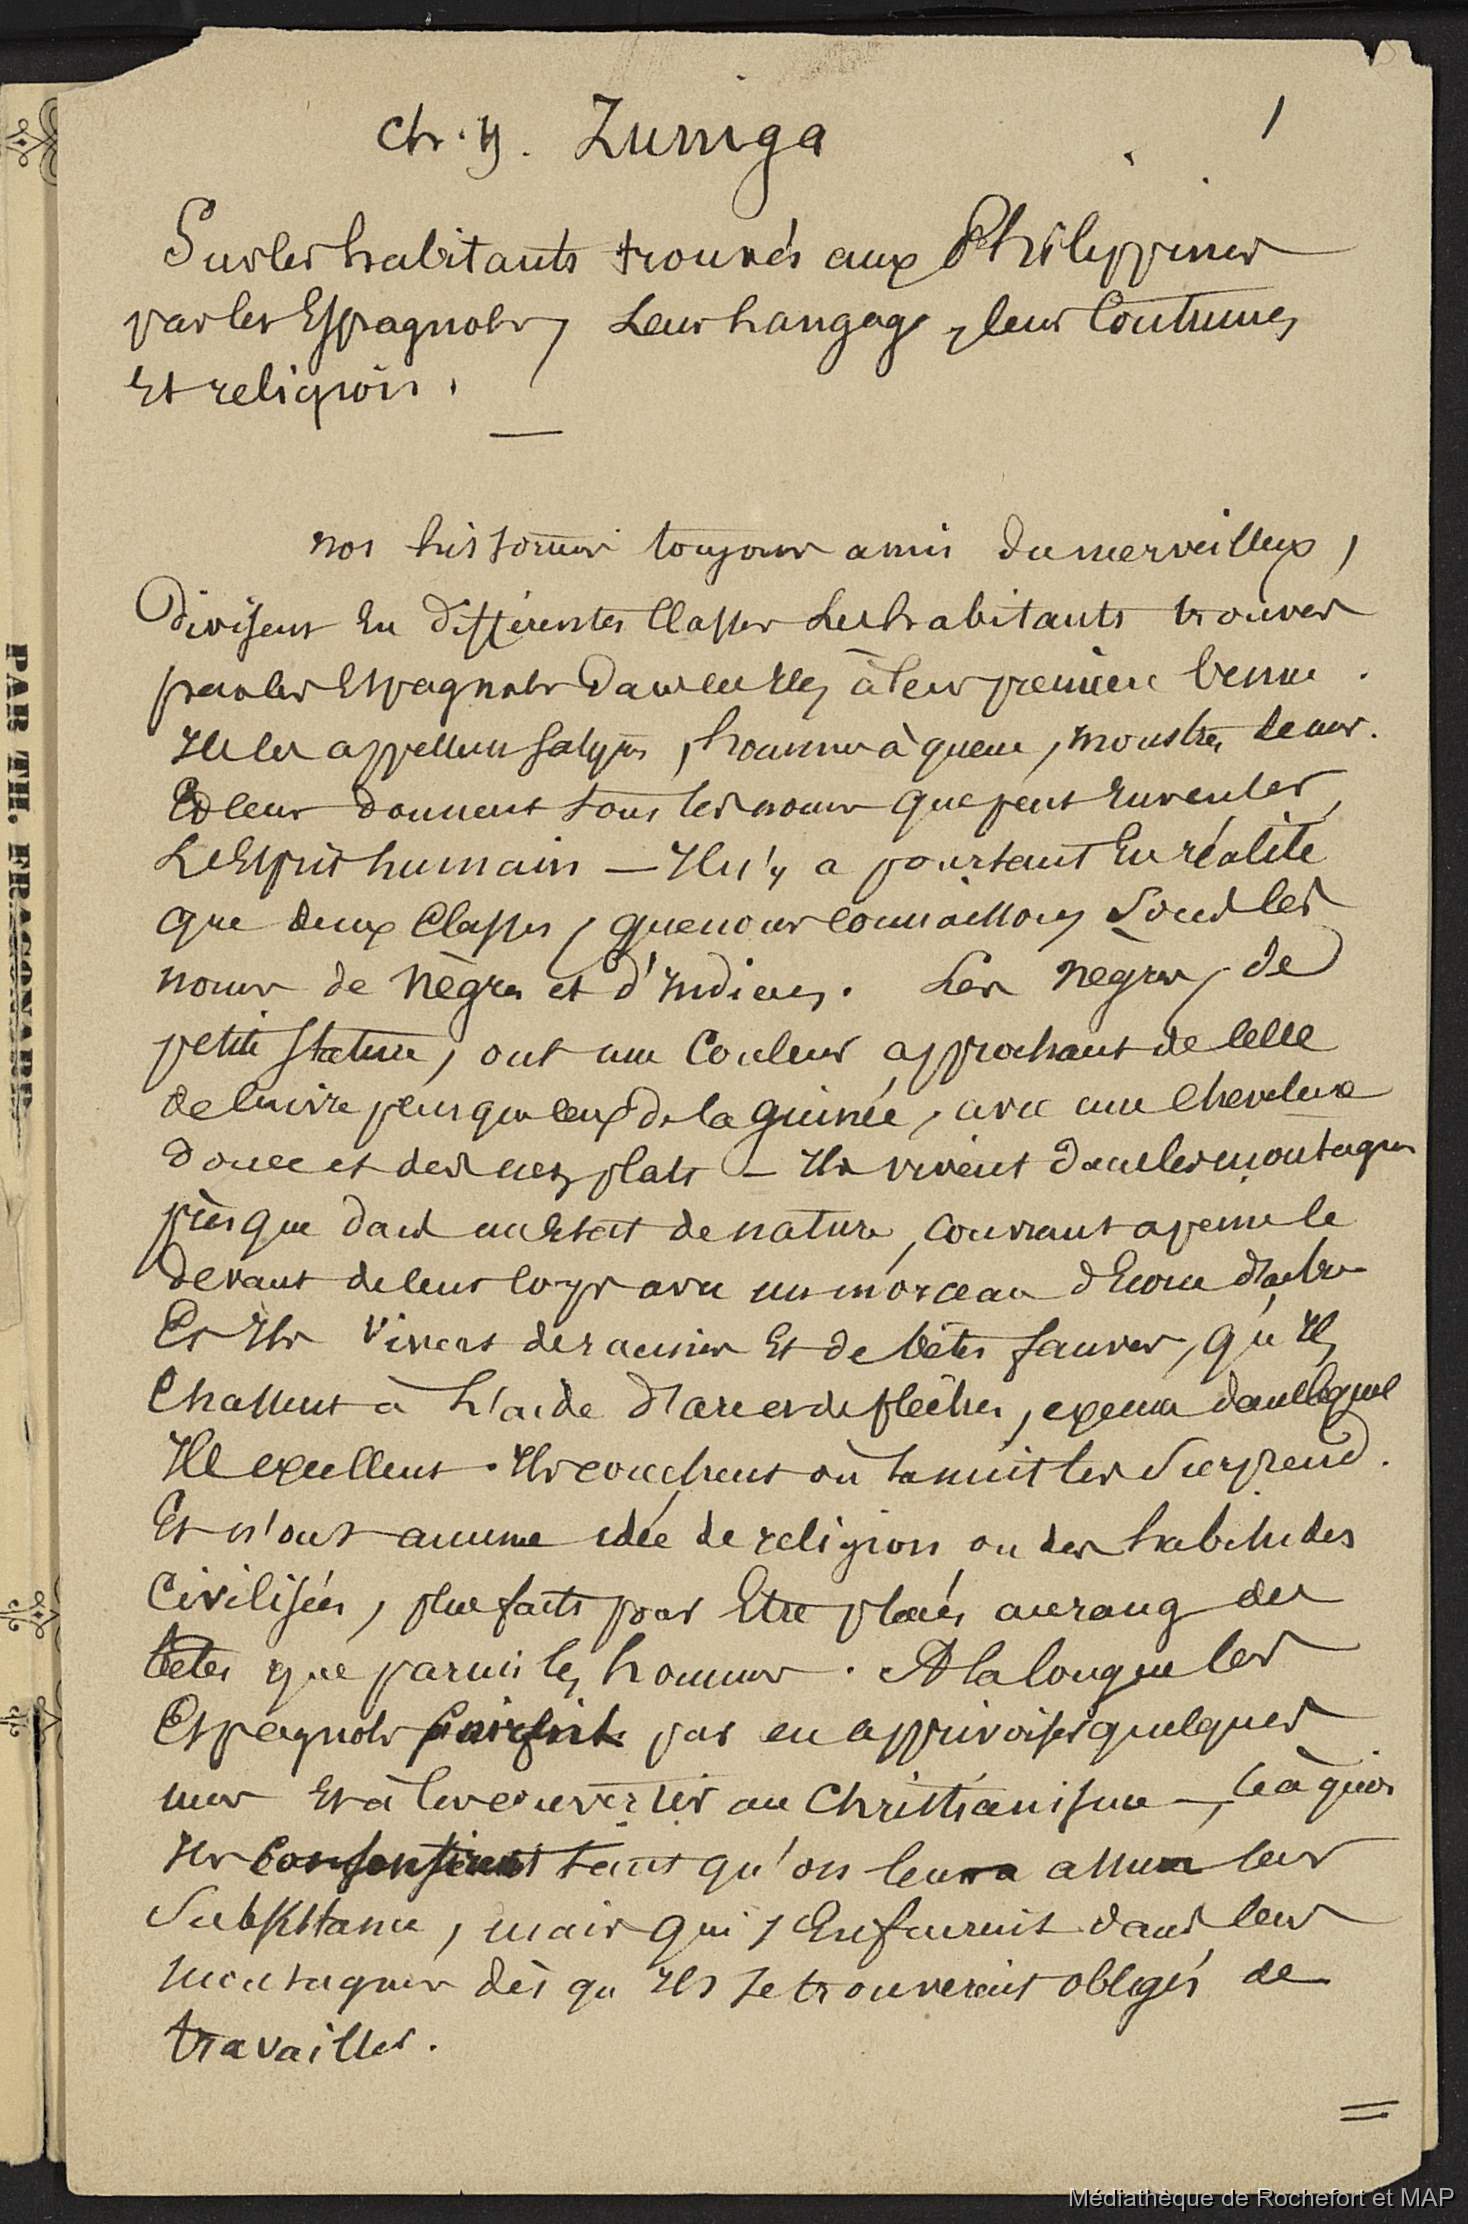 Ch. y. Zuniga
1
Sur les habitants trouvés aux Philippines
par les Espagnols, Leur Langage, leur Coutumes
Et religion.
nos historiens toujours amis du merveilleux,
Divisent En différentes Classes Les habitants trouvés
par les Espagnols Dans ces Iles à leur première Venue.
Ils les appellent Satyres, hommes à queue, monstres de mer.
Et leur donnent tous les noms que peut Inventer
L'Esprit humain — Il n'y a pourtant En réalité
que deux Classes, que nous connaissons Sous les
noms de nègres et d'Indiens. Les nègres, de
petite Stature, ont une Couleur approchant de Celle
de cuivre plus que ceux de la Guinée, avec une Chevelure
douce et des nez plats — Ils vivent dans les montagnes
presque dans un Etat de nature, couvrant a peine le
devant de leur corps avec un morceau d'Ecorce d'arbre
Et Ils Vivent de racines Et de bêtes fauves, qu'Ils
Chassent à L'aide d'arcs et de flèches, dans lequel
Ils excellent. Ils couchent où la nuit les Surprend.
Et n'ont aucune idée de religion ou des habitudes
Civilisées, plus faits pour Etre placés au rang des
bêtes que parmi les hommes. A la longue les
Espagnols par en apprivoiser quelques
uns Et à les convertir au Christianisme —, Ce à quoi
Ils Consentirent tant qu'on leur assura leur
Subsistance, mais qui s'Enfuirent dans leur
montagnes dès qu'Ils se trouveraient obligés de
travailler.
PAR TH. FRAGONARD
Médiathèque de Rochefort et MAP